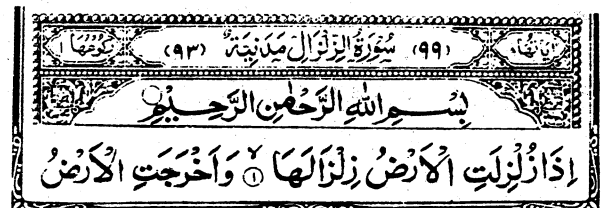 اياتها ٨ (٩٩) سُوْرَةُ الزِّلْزَالِ مَدَنِيَّةٌ (٩٣) ركوعها ١
بِسْمِ اللهِ الرَّحْمٰنِ الرَّحِيْمِ
اِذَا زُلْزِلَتِ الْاَرْضُ زِلْزَالَهَا ۙ ۱ وَاَخْرَجَتِ الْاَرْضُ